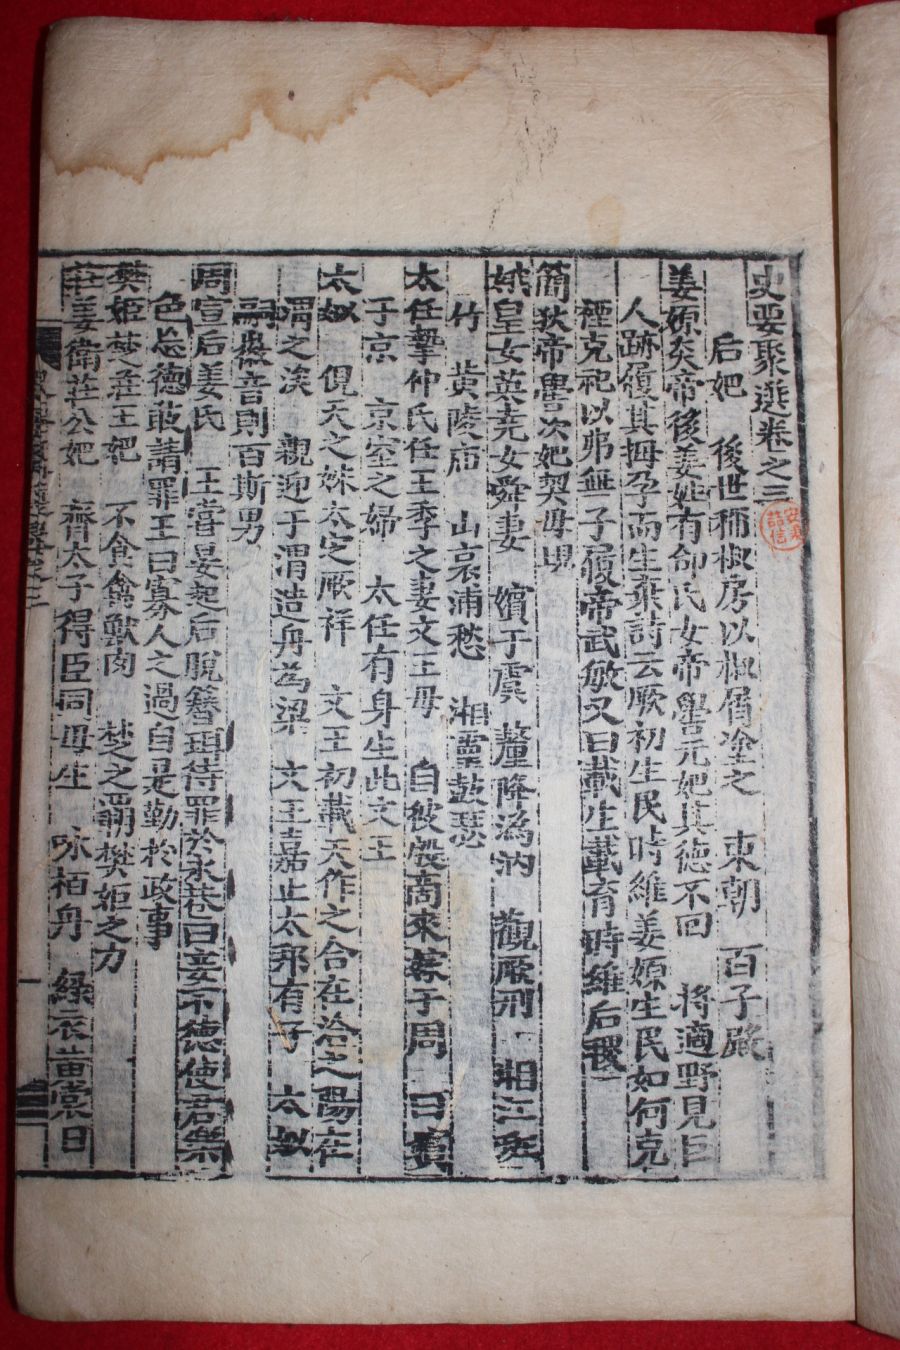 史要聚選卷之三
后妃 後世稱椒房以椒屑塗之 東朝 百子殿
姜嫄炎帝後姜姓有邰氏女帝嚳元妃其德不回 將適野見巨
人跡履其拇孕而生棄詩云厥初生民時維姜嫄生民如何克
禋克祀以弗無子履帝武敏又曰載生載育時維后稷
簡狄帝嚳次妃契母
娥皇女英堯女舜妻 嬪于虞 釐降溈汭 觀厥刑 湘江班
竹 黄陵庙 山哀浦愁 湘靈鼓瑟
太任摯仲氏任王季之妻文王母 自彼殷商來嫁于周 曰嬪
于京 京室之婦 太任有身生此文王
太姒 俔天之妹太定厥祥 文王初載天作之合在洽之陽在
渭之涘 親迎于渭造舟為梁 文王嘉止太邦有子 太姒
嗣徽音則百斯男
周宣后姜氏 王嘗晏起后脫簪珥待罪於永巷曰妾不德使君樂
色忘德敢請罪王曰寡人之過自是勤於政事
樊姬楚莊王妃 不食禽獸肉 楚之霸樊姬之力
莊姜衛莊公妃 齊太子得臣同母生 咏栢舟 綠衣黄裳曰